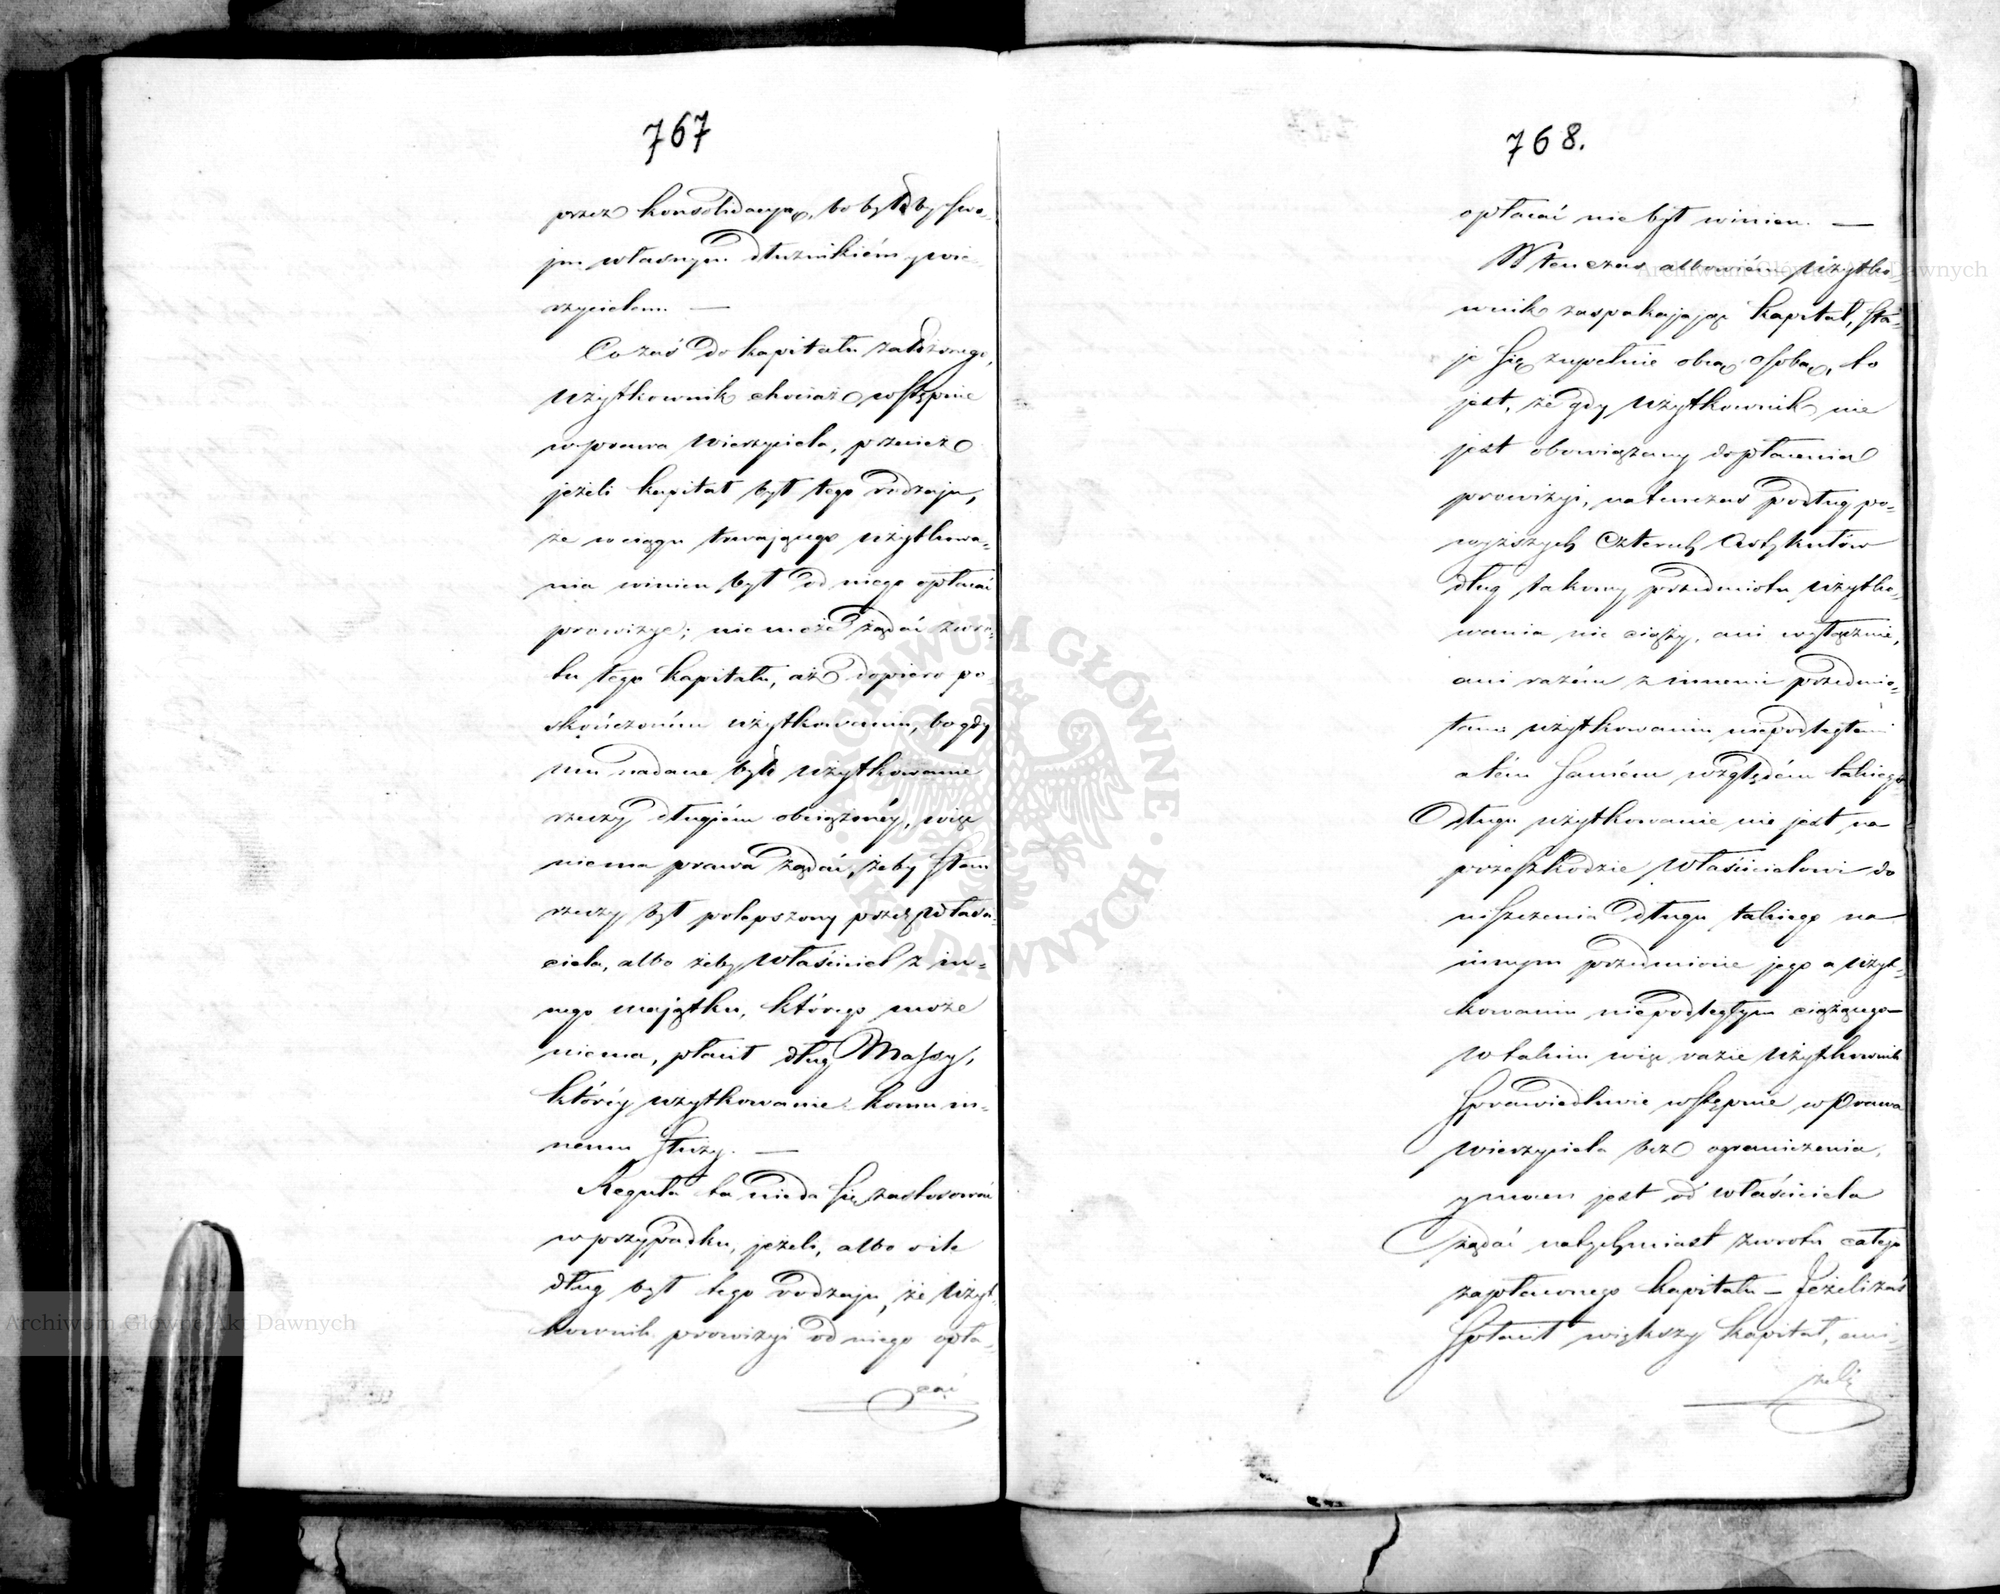 767
przez konsolidacyą, bo byłby swo-
jm własnym dłużnikiém y wie-
rzycielem. —
Co zaś do kapitału założonego,
użytkownik chociaż wstępuie
w prawa wierzyciela, przecież
jeżeli kapitał był tego rodzaju,
że w ciągu trwającego użytkowa-
nia winien był od niego opłacać
prowizye; nie może żądać zwro-
tu tego kapitału, aż dopiero po
skończoném użytkowaniu, bo gdy
mu nadane było użytkowanie
rzeczy długiem obciążonéy, więc
niema prawa żądać, żeby stan
rzeczy był polepszony przez właści-
ciela, albo żeby właściciel z in-
nego majątku, którego może
niema, płacił dług Massy,
któréy użytkowanie komu in-
nemu służy. —
Reguła ta nieda się zastosować
w przypadku, jeżeli, albo
dług był tego rodzaju, że użyt-
kownik prowizyi od niego opła-
cać
768.
opłacać nie był winien. —
W tenczas albowiém użytko-
wnik zaspakajając kapitał, sta-
je się zupełnie obcą osobą, to
jest, że gdy użytkownik nie
jest obowiązany do płacenia
prowizyi, natenczas podług po-
wyższych czterech Artykułów
dług takowy przedmiotu użytko-
wania nie ciąży, ani wyłącznie,
ani razém z innemi przedmio-
tami użytkowaniu niepodległemi
a tém samém względém takiego
długu użytkowanie nie jest na
przeszkodzie właścicielowi do
niszczenia długu takiego na
innym przedmiocie jego a użyt-
kowaniu niepodległym ciążącego —
w takim więc razie użytkownik
sprawiedliwie wstępuie w prawa
wierzyciela bez ograniczenia,
y mocen jest od właściciela
żądać natychmiast zwrotu całego
zapłaconego kapitału — Jeżeli zaś
spłacił większy kapitał, ani-
żeli
Archiwum Główne Akt Dawnych
Archiwum Główne Akt Dawnych
ARCHIWUM GŁÓWNE · AKT DAWNYCH ·